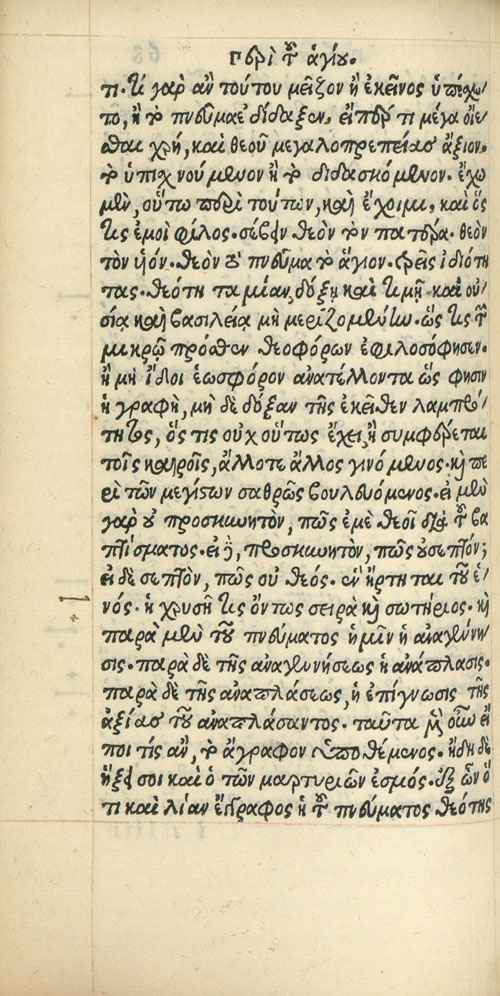 Περὶ τοῦ ἁγίου.
τι. τί γὰρ ἂν τούτου μεῖζον ἢ ἐκεῖνος ὑπέσχε
το, ἢ τὸ πνεῦμα ἐδίδαξεν, εἴπερ τι μέγα οἴε
σθαι χρή, καὶ θεοῦ μεγαλοπρεπείας ἄξιον.
τὸ ὑπισχνούμενον ἢ τὸ διδασκόμενον. ἔχω
μὲν, οὕτω περὶ τούτων, καὶ ἔχοιμι, καὶ ὅς
τις ἐμοὶ φίλος. σέβειν θεὸν τὸν πατέρα. θεὸν
τὸν υἱόν. θεὸν τὸ πνεῦμα τὸ ἅγιον. τρεῖς ἰδιότη
τας. θεότητα μίαν, δόξῃ καὶ τιμῇ καὶ οὐ
σίᾳ καὶ βασιλείᾳ μὴ μεριζομένην. ὥς τις τῶν
μικρῷ πρόσθεν θεοφόρων ἐφιλοσόφησεν.
ἢ μὴ ἴδοι ἑωσφόρον ἀνατέλλοντα ὥς φησιν
ἡ γραφὴ, μὴ δὲ δόξαν τῆς ἐκεῖθεν λαμπρό
τητος, ὅς τις οὐχ οὕτως ἔχει, ἢ συμφέρεται
τοῖς καιροῖς, ἄλλοτε ἄλλος γινόμενος. καὶ πε
ρὶ τῶν μεγίστων σαθρῶς βουλευόμενος. εἰ μὲν
γὰρ οὐ προσκυνητὸν, πῶς ἐμὲ θεοῖ διὰ τοῦ βα
πτίσματος. εἰ δὲ, προσκυνητὸν, πῶς οὐ σεπτόν;
εἰ δὲ σεπτὸν, πῶς οὐ θεός. ἓν ἤρτηται τοῦ ἑ
νός. ἡ χρυσῆ τις ὄντως σειρὰ καὶ σωτήριος. καὶ
παρὰ μὲν τοῦ πνεύματος ἡμῖν ἡ ἀναγέννη
σις. παρὰ δὲ τῆς ἀναγεννήσεως ἡ ἀνάπλασις.
παρὰ δὲ τῆς ἀναπλάσεως, ἡ ἐπίγνωσις τῆς
ἀξίας τοῦ ἀναπλάσαντος. ταῦτα μὲν οὖν εἴ
ποι τίς ἂν, τὸ ἄγραφον ὑποθέμενος. ἤδη δὲ
ἥξει σοι καὶ ὁ τῶν μαρτυριῶν ἐσμός. ἐξ ὧν ὅ
τι καὶ λίαν ἔγγραφος ἡ τοῦ πνεύματος θεότης